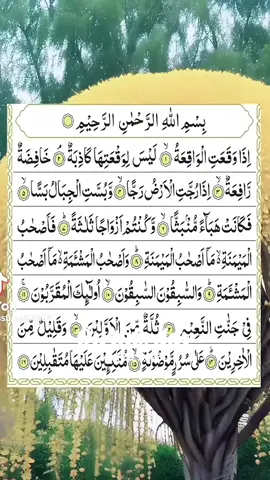 بِسْمِ اللهِ الرَّحْمٰنِ الرَّحِيْمِ
اِذَا وَقَعَتِ الْوَاقِعَةُ ۝١ لَيْسَ لِوَقْعَتِهَا كَاذِبَةٌ ۝٢ خَافِضَةٌ
رَّافِعَةٌ ۝٣ اِذَا رُجَّتِ الْاَرْضُ رَجًّا ۝٤ وَّبُسَّتِ الْجِبَالُ بَسًّا ۝٥
فَكَانَتْ هَبَآءً مُّنْۢبَثًّا ۝٦ وَّكُنْتُمْ اَزْوَاجًا ثَلٰثَةً ۝٧ فَاَصْحٰبُ
الْمَيْمَنَةِ مَاۤ اَصْحٰبُ الْمَيْمَنَةِ ۝٨ وَاَصْحٰبُ الْمَشْـَٔمَةِ مَاۤ اَصْحٰبُ
الْمَشْـَٔمَةِ ۝٩ وَالسّٰبِقُوْنَ السّٰبِقُوْنَ ۝١٠ اُولٰٓئِكَ الْمُقَرَّبُوْنَ ۝١١
فِيْ جَنّٰتِ النَّعِيْمِ ۝١٢ ثُلَّةٌ مِّنَ الْاَوَّلِيْنَ ۝١٣ وَقَلِيْلٌ مِّنَ
الْاٰخِرِيْنَ ۝١٤ عَلٰى سُرُرٍ مَّوْضُوْنَةٍ ۝١٥ مُّتَّكِـِٕيْنَ عَلَيْهَا مُتَقٰبِلِيْنَ ۝١٦